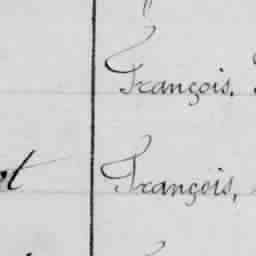 François.
François,